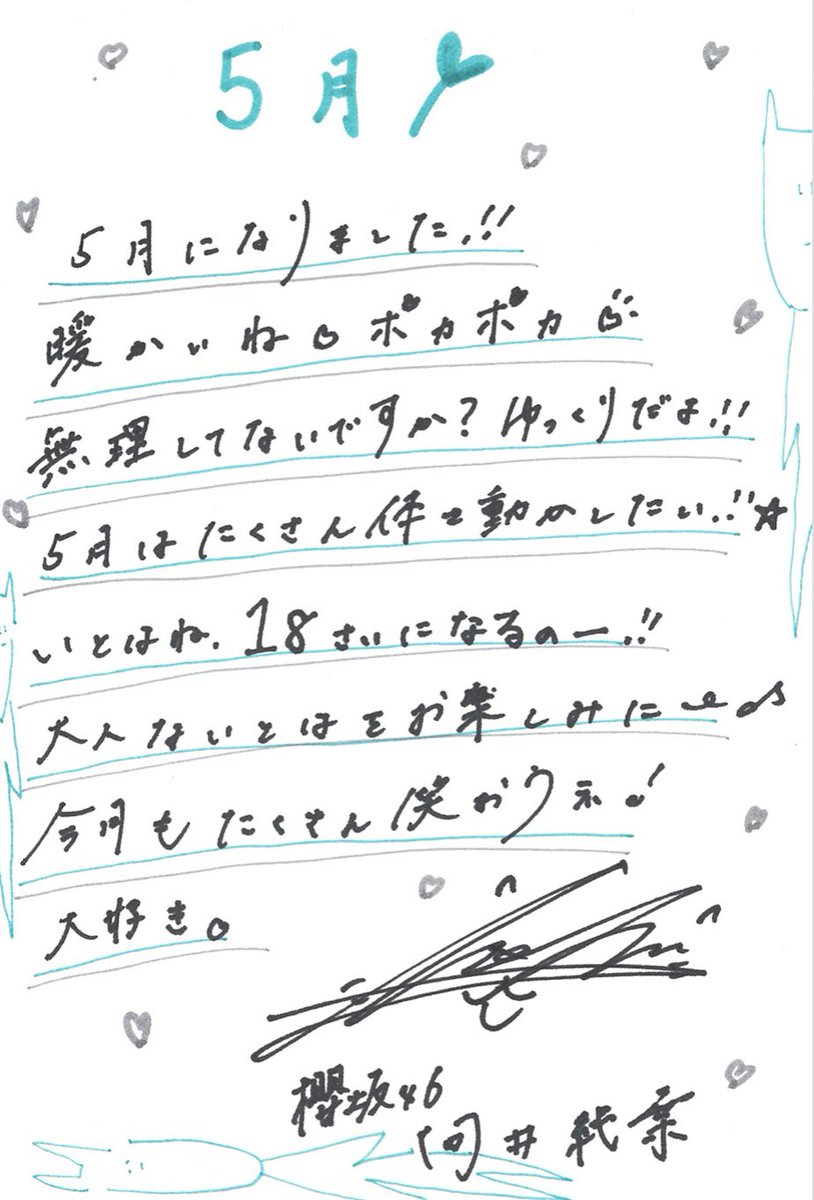 5月
5月になりました!!
暖かいね ポカポカ
無理してないですか?ゆっくりだよ!!
5月はたくさん体を動かしたい!!☆
いとはね、18さいになるのー!!
大人ないとはをお楽しみに〜♪
今月もたくさん笑おうネ!
大好き。
櫻坂46
向井純葉